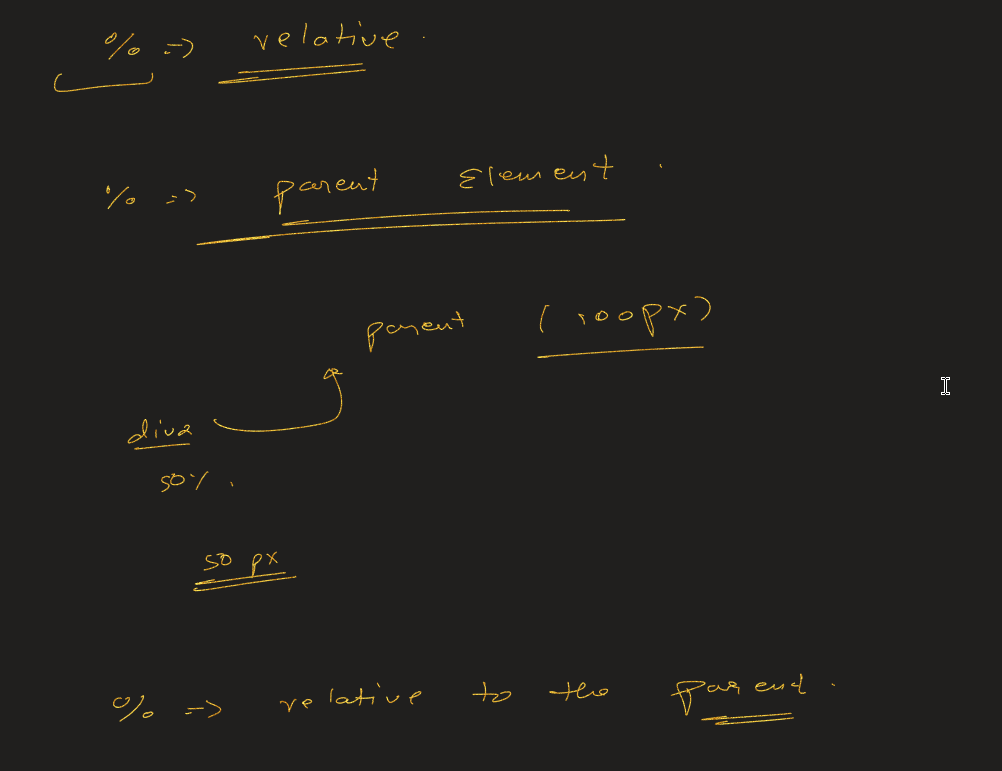 % => relative.
% => parent Element.
parent (100px)
div2
50%.
50 px
% => relative to the parent.